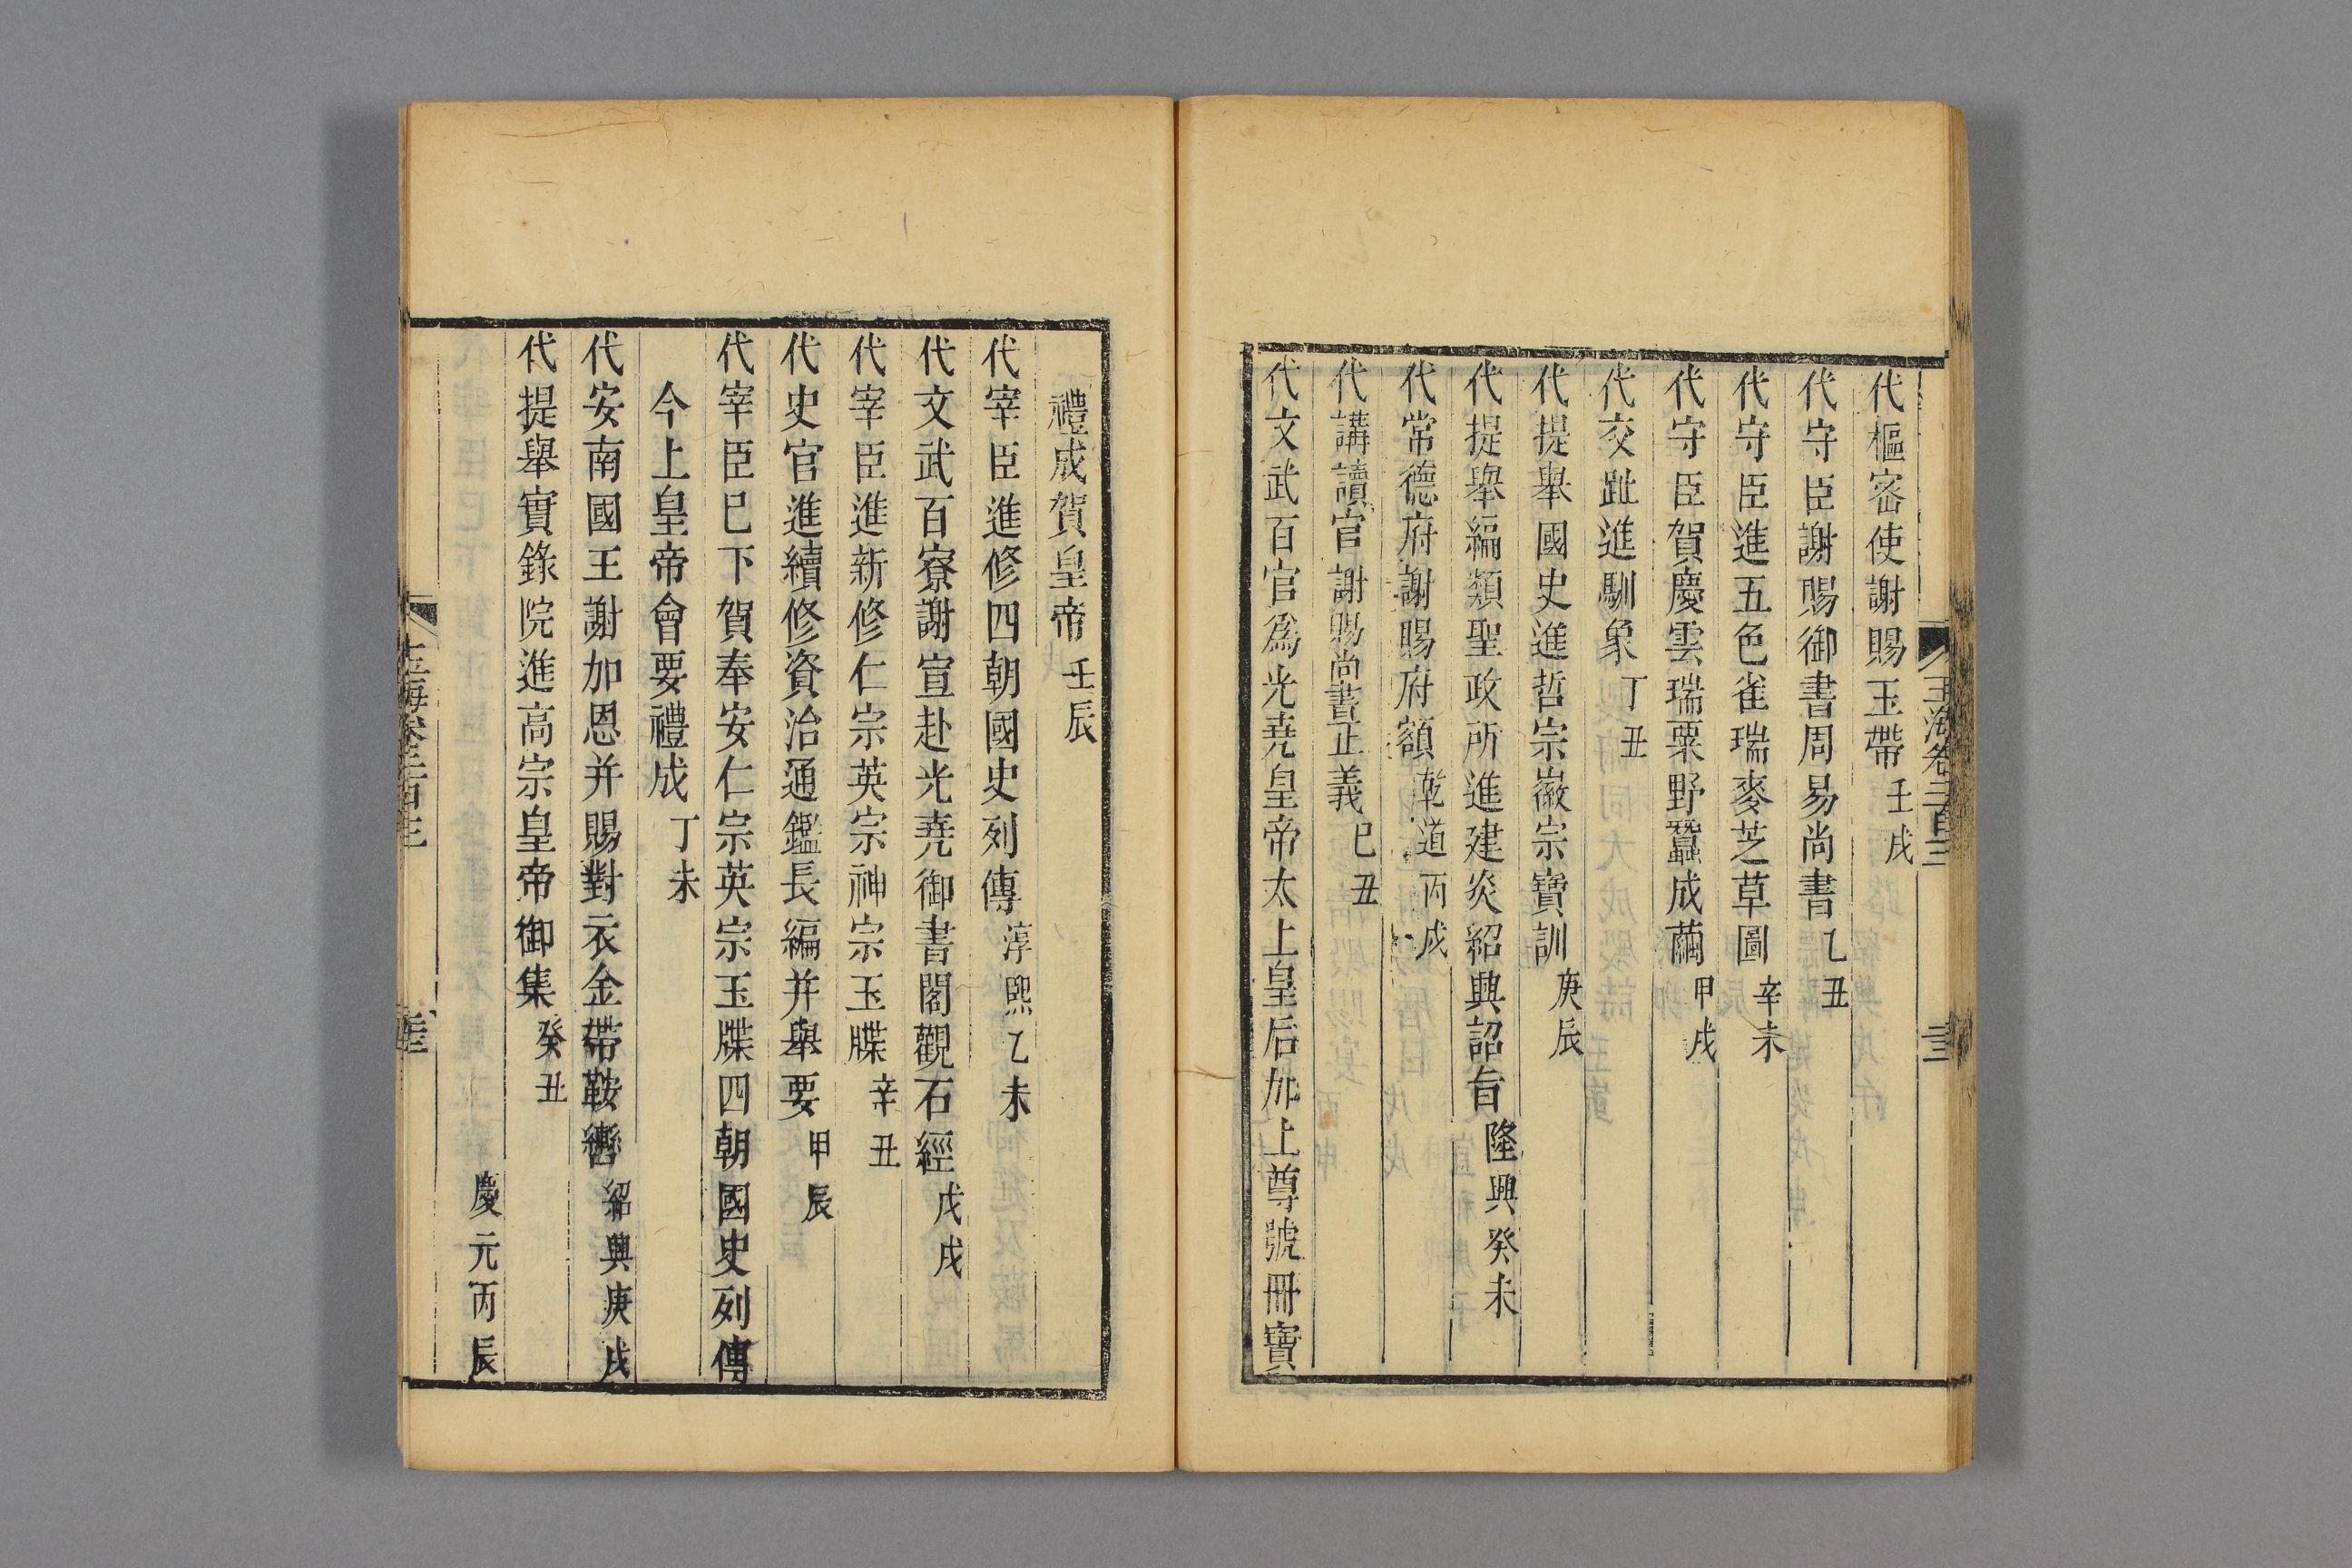 玉海卷二百三
代樞密使謝賜玉帶壬戌
代守臣謝賜御書周易尚書乙丑
代守臣進五色雀瑞麥芝草圖辛未
代守臣賀慶雲瑞粟野蠶成繭甲戌
代交趾進馴象丁丑
代提舉國史進哲宗徽宗寶訓庚辰
代提舉編類聖政所進建炎紹興詔旨隆興癸未
代常德府謝賜府額乾道丙戌
代講讀官謝賜尚書正義己丑
代文武百官爲光堯皇帝太上皇后加上尊號冊寶
禮成賀皇帝壬辰
代宰臣進修四朝國史列傳淳熙乙未
代文武百寮謝宣赴光堯御書閣觀石經戊戌
代宰臣進新修仁宗英宗神宗玉牒辛丑
代史官進續修資治通鑑長編并舉要甲辰
代宰臣已下賀奉安仁宗英宗玉牒四朝國史列傳
今上皇帝會要禮成丁未
代安南國王謝加恩并賜對衣金帶鞍轡紹興庚戌
代提舉實錄院進高宗皇帝御集癸丑
慶元丙辰